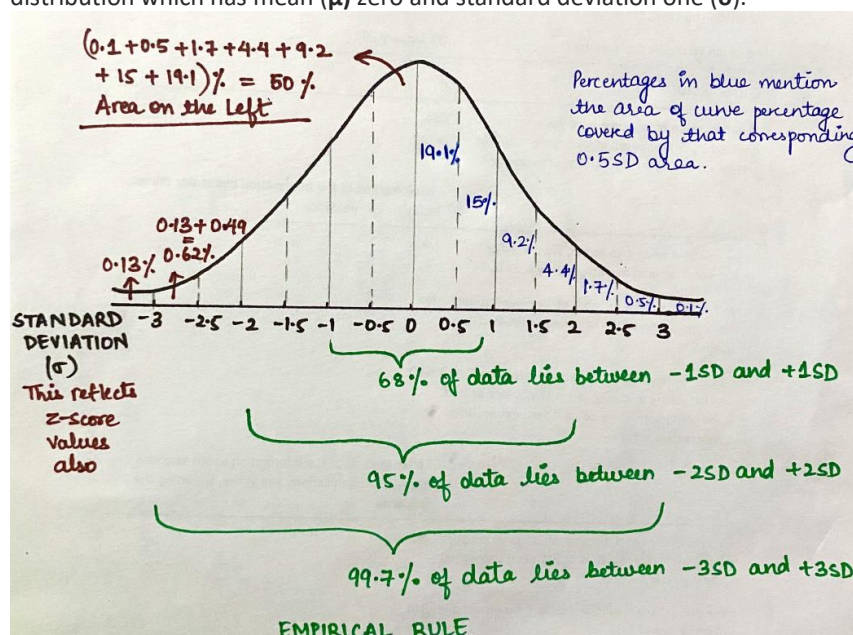 distribution which has mean (μ) zero and standard deviation one (σ).
(0.1+0.5+1.7+4.4+9.2
+ 15 + 19.1)% = 50%
Area on the Left
Percentages in blue mention
the area of curve percentage
covered by that corresponding
0.5SD area.
19.1%
15%
9.2%
4.4%
1.7%
0.5%
0.1%
0.13+0.49
=
0.13% 0.62%
-3 -2.5 -2 -1.5 -1 -0.5 0 0.5 1 1.5 2 2.5 3
STANDARD
DEVIATION
(σ)
This reflects
z-score
values
also
68% of data lies between -1SD and +1SD
95% of data lies between -2SD and +2SD
99.7% of data lies between -3SD and +3SD
EMPIRICAL RULE